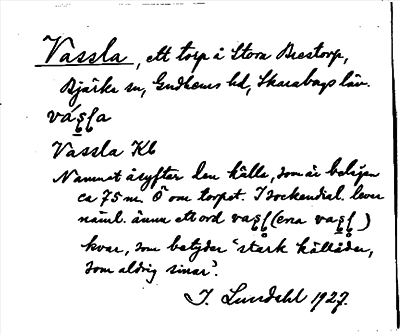 Vassla, ett torp å Stora Brestorp,
Bjärka sn, Gudhems hd, Skarabogs län.
vás̥s̥a
Vassla Kb
Namnet åsyftar den källa, som är belägen
ca 75 m Ö om torpet. I sockendial. lever
näml. ännu ett ord vas̥l̥ (ena vas̥l̥)
kvar, som betyder "stark källåder,
som aldrig sinar".
I. Lundahl 1927.